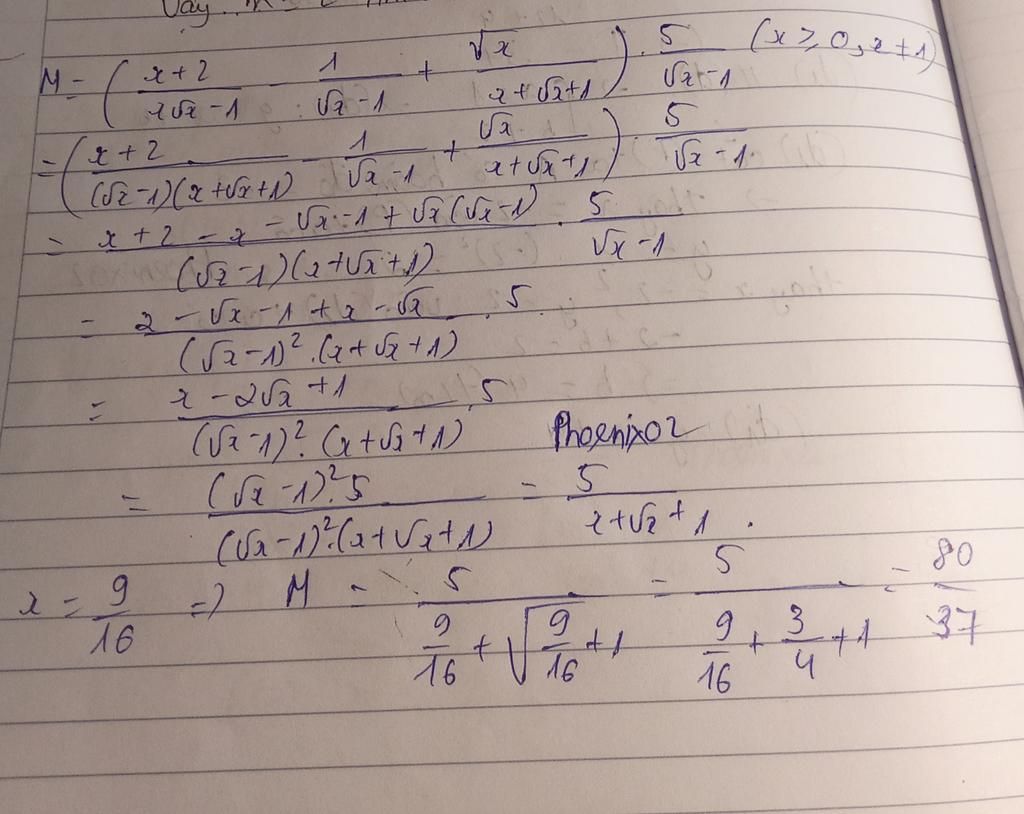 Vậy
M = ( x+2 / x√x − 1 − 1 / √x − 1 + √x / x+√x+1 ) . 5 / √x − 1 (x ≥ 0, x ≠ 1)
= ( x+2 / (√x − 1)(x+√x+1) − 1 / √x − 1 + √x / x+√x+1 ) . 5 / √x − 1
= x + 2 − x − √x − 1 + √x(√x − 1) / (√x − 1)(x+√x+1) . 5 / √x − 1
= 2 − √x − 1 + x − √x . 5 / (√x − 1)² . (x+√x+1)
= x − 2√x + 1 . 5 / (√x − 1)² . (x+√x+1)
Phoenix02
= (√x − 1)² . 5 / (√x − 1)² . (x+√x+1) = 5 / x+√x+1 .
x = 9/16 => M = 5 / 9/16 + √9/16 + 1 = 5 / 9/16 + 3/4 + 1 = 80/37